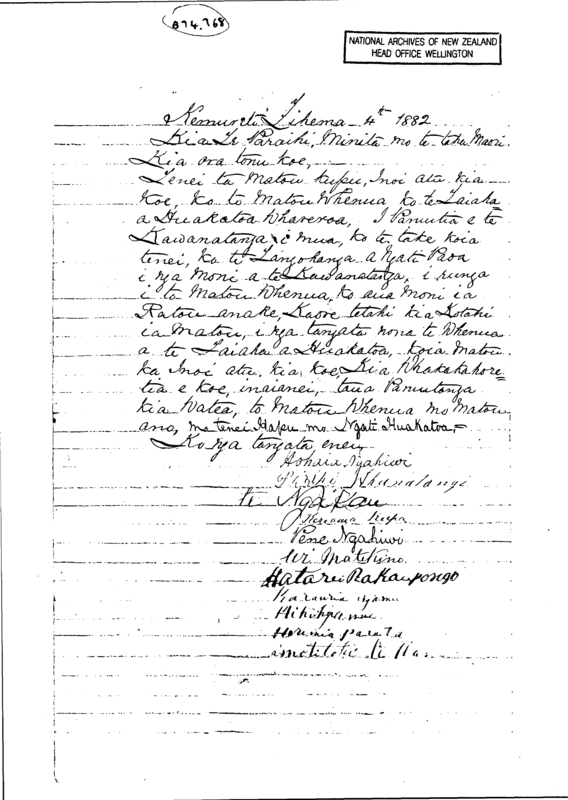 B74.768
NATIONAL ARCHIVES OF NEW ZEALAND
HEAD OFFICE WELLINGTON
Kemureti Tihema 4th 1882
Kia Te Paraihi, Minita mo te taha Maori.
Kia ora tonu koe,
Tenei ta Matou kupu, Inoi atu kia
Koe, ko to Matou Whenua ko te Taiaha
a Huakatoa Whareroa, I Panuitia e te
Kawanatanga i mua, ko te take koia
tenei, ko te Tangohanga a Ngati Paoa
i nga Moni a te Kawanatanga, i runga
i to Matou Whenua, ko aua Moni ia
Ratou anake, Kaore tetahi kia Kotahi
ia Matou, i nga tangata nona te Whenua
a te Taiaha a Huakatoa, koia Matou
ka Inoi atu kia koe, Kia Whakakahore=
tia e koe, inaianei, taua Panuitanga
kia Watea, to Matou Whenua mo Matou
ano, mo tenei Hapu mo Ngati Huakatoa,
Ko nga tangata enei
Ngahiwi
te Ngakau
Pene Ngahiwi
Wi Matikino
Hatarei Rakaupongo
Karauria
Heremia Parata
te